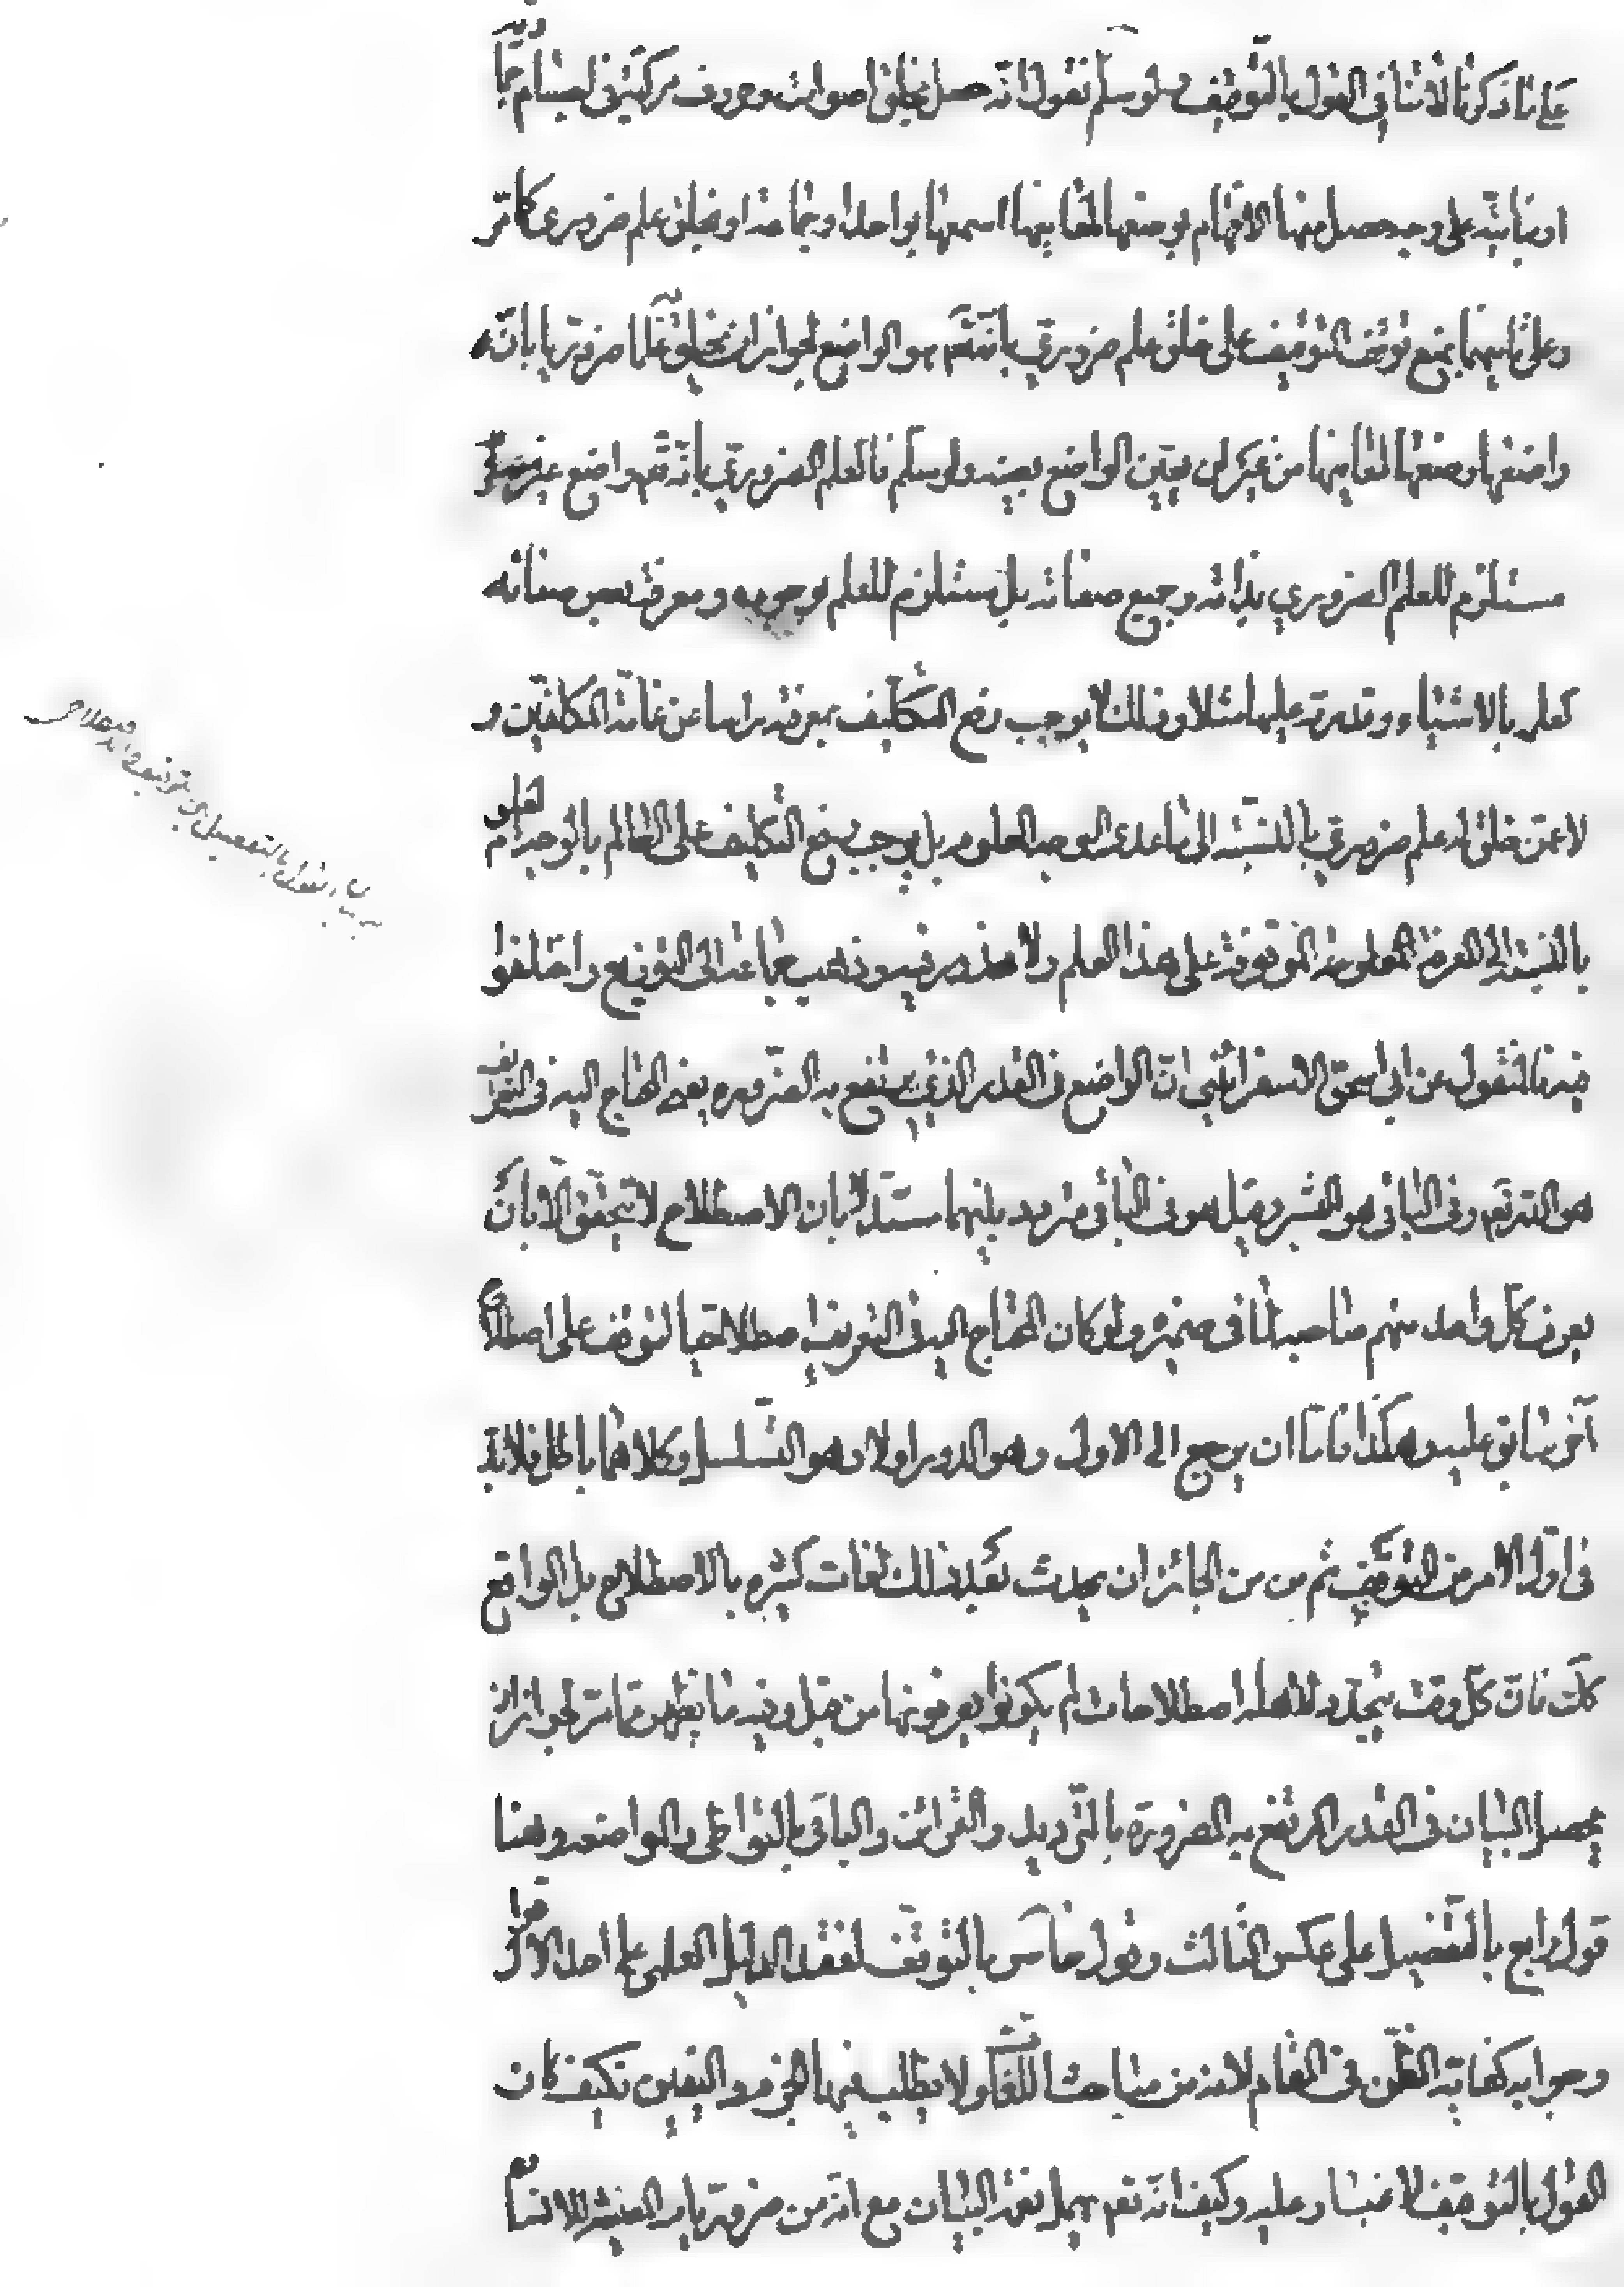 على ما ذكرنا لا ينافى القول بالتوقيف ولو سلم نقول انه حصل بخلق اصوات وحروف مركبة فى اجسام جمادية
او نباتية على وجه حصل منها الافهام بوضعها لمعانيها اسمعها بواحد او جماعة او بخلق علم ضرورى كما مر
وعلى ثانيهما بمنع توقف التوقيف على خلق علم ضرورى بانه تعالى هو الواضع لجواز ان يخلق علما ضروريا بانه
واضعها وضعها لمعانيها من غير ان يعين الواضع بعينه ولو سلم فالعلم الضرورى بانه تعم واضع غير
مستلزم للعلم الضرورى بذاته وجميع صفاته بل مستلزم للعلم بوجوبه ومعرفة بعض صفاته
كعلمه بالاشياء وقدرته عليها مثلا وذلك لا يوجب رفع التكليف بمعرفته راسا عن عامة المكلفين و
لا عمن خلق له علم ضرورى بالنسبة الى ما عدى الوجه المعلوم بل يوجب رفع التكليف على العالم بالوجه المعلوم
بالنسبة الى المعرفة المعلومة الموقوفة على هذا العلم ولا محذور فيه وذهب جماعة الى التوزيع واختلفوا
فيه فالمنقول عن ابى اسحق الاسفرائينى ان الواضع فى القدر الذى يرتفع به الضرورة يعنى المحتاج اليه فى التعريف
هو الله تعم وفى الباقى هو البشر وقيل هو فى الباقى متردد بينهما مستدلا بان الاصطلاح لا يتحقق الا بان
يعرف كل واحد منهم صاحبه ما فى ضميره ولو كان المحتاج اليه فى التعريف اصطلاحيا لتوقف على اصطلاح
آخر سابق عليه وهكذا فاما ان يرجع الى الاول وهو الدور اولا وهو التسلسل وكلاهما باطل فلا بد
فى اول الامر من التوقيف ثم من من الجائز ان يحدث بعد ذلك لغات كثيرة بالاصطلاح بل الواقع
كك فان كل وقت يتجدد لاهله اصطلاحات لم يكونوا يعرفونها من قبل وفيه ما يظهر مما مر لجواز ان
يحصل البيان فى القدر المرتفع به الضرورة بالترديد والقرائن والباقى بالتواطى والمواضعة وهنا
قول رابع بالتفصيل على عكس الثالث وقول خامس بالتوقف لفقد الدليل العلمى على احد الاقوال
وجوابه كفاية الظن فى المقام لانه من مباحث اللغات ولا يطلب فيها الجزم واليقين فكيف كان
القول بالتوقيف لا غبار عليه وكيف انه تعم يهمل بعد البيان مع انه من ضروريات العيشة للانسان